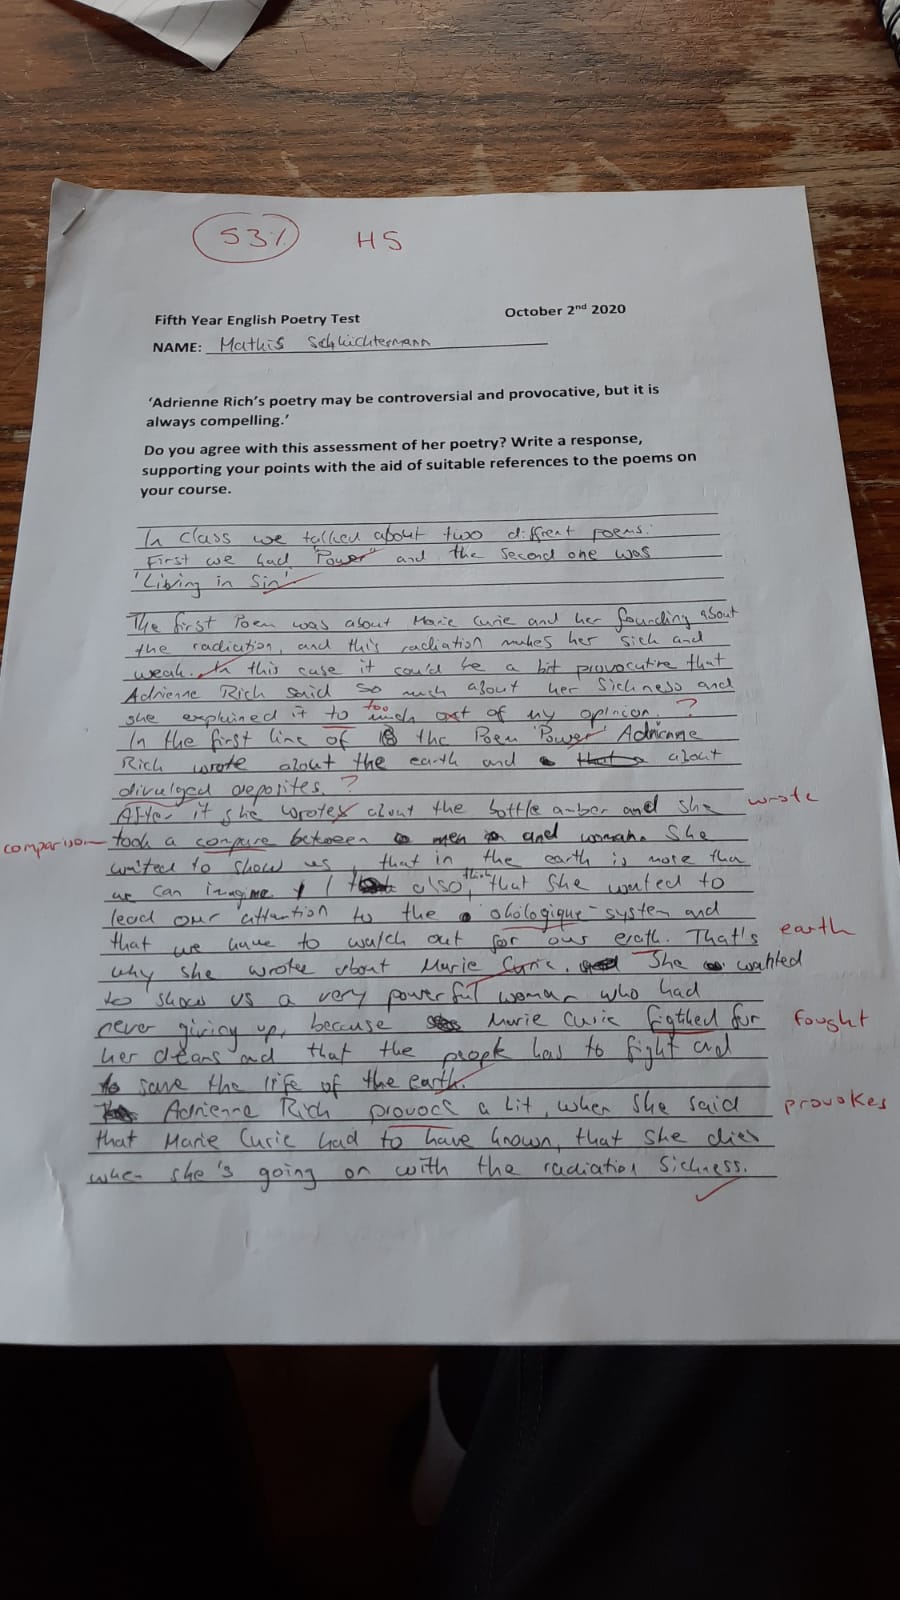 53% H5
Fifth Year English Poetry Test October 2nd 2020
NAME: Mathis Schlichtermann
'Adrienne Rich's poetry may be controversial and provocative, but it is
always compelling.'
Do you agree with this assessment of her poetry? Write a response,
supporting your points with the aid of suitable references to the poems on
your course.
In class we talked about two diffrent poems.
First we had "Power" and the second one was
'Living in Sin'
The first Poem was about Marie Curie and her founding about
the radiation, and this radiation makes her sick and
weak. In this case it could be a bit provocative that
Adrienne Rich said so much about her Sickness and
too
she explained it to much out of my opinion. ?
In the first line of the Poem 'Power' Adrienne
Rich wrote about the earth and about
divulged deposites. ?
After it she wrotes about the bottle amber and she wrote
comparison took a compare between men and woman. She
wanted to show us, that in the earth is more than
we can imagine I also, think that she wanted to
lead our attention to the okologique-system and
that we have to watch out for our erath. That's earth
why she wrote about Marie Curie. She wanted
to show us a very powerful woman who had
never giving up, because Marie Curie figthed for fought
her dreans and that the people has to fight and
to save the life of the earth.
Adrienne Rich provoce a bit, when she said provokes
that Marie Curie had to have known, that she dies
when she's going on with the radiation Sickness.